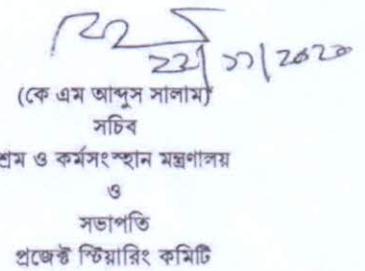 ২২/১১/২০২০
(কে এম আব্দুস সালাম)
সচিব
শ্রম ও কর্মসংস্থান মন্ত্রণালয়
ও
সভাপতি
প্রজেক্ট স্টিয়ারিং কমিটি